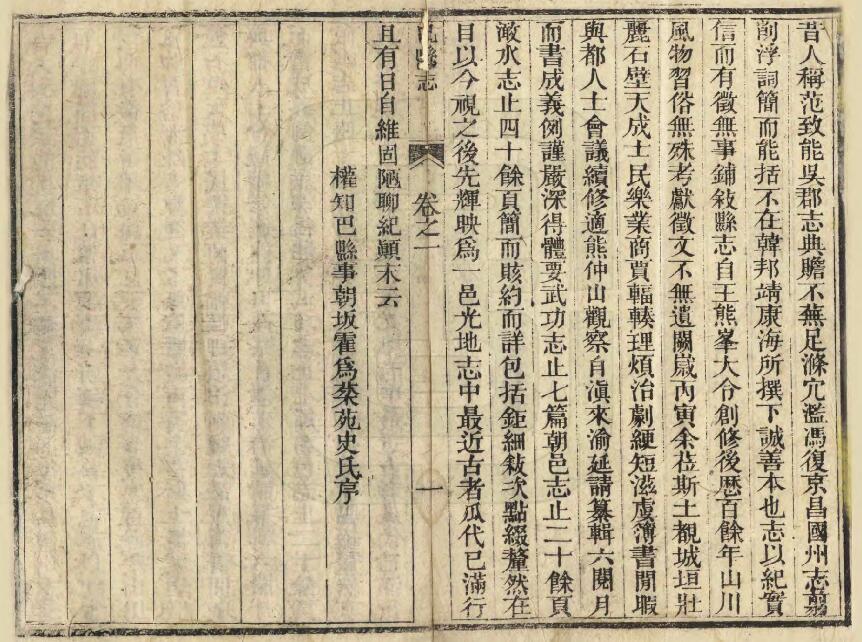 昔人稱范致能吳郡志典贍不蕪足滌宂濫馮復京昌國州志翦
削浮詞簡而能括不在韓邦靖康海所撰下誠善本也志以紀實
信而有徵無事鋪敘縣志自王熊峯大令創修後歷百餘年山川
風物習俗無殊考獻徵文不無遺闕嵗丙寅余莅斯土覩城垣壯
麗石壁天成士民樂業商賈輻輳理煩治劇綆短滋虞簿書閒暇
與都人士會議續修適熊仲山觀察自滇來渝延請纂輯六閱月
而書成義例謹嚴深得體要武功志止七篇朝邑志止二十餘頁
澉水志止四十餘頁簡而賅約而詳包括鉅細敍次點綴釐然在
目以今視之後先輝映爲一邑光地志中最近古者瓜代已滿行
且有日自維固陋聊紀顚末云
權知巴縣事朝坂霍爲棻苑史氏序
縣志
卷之一
一